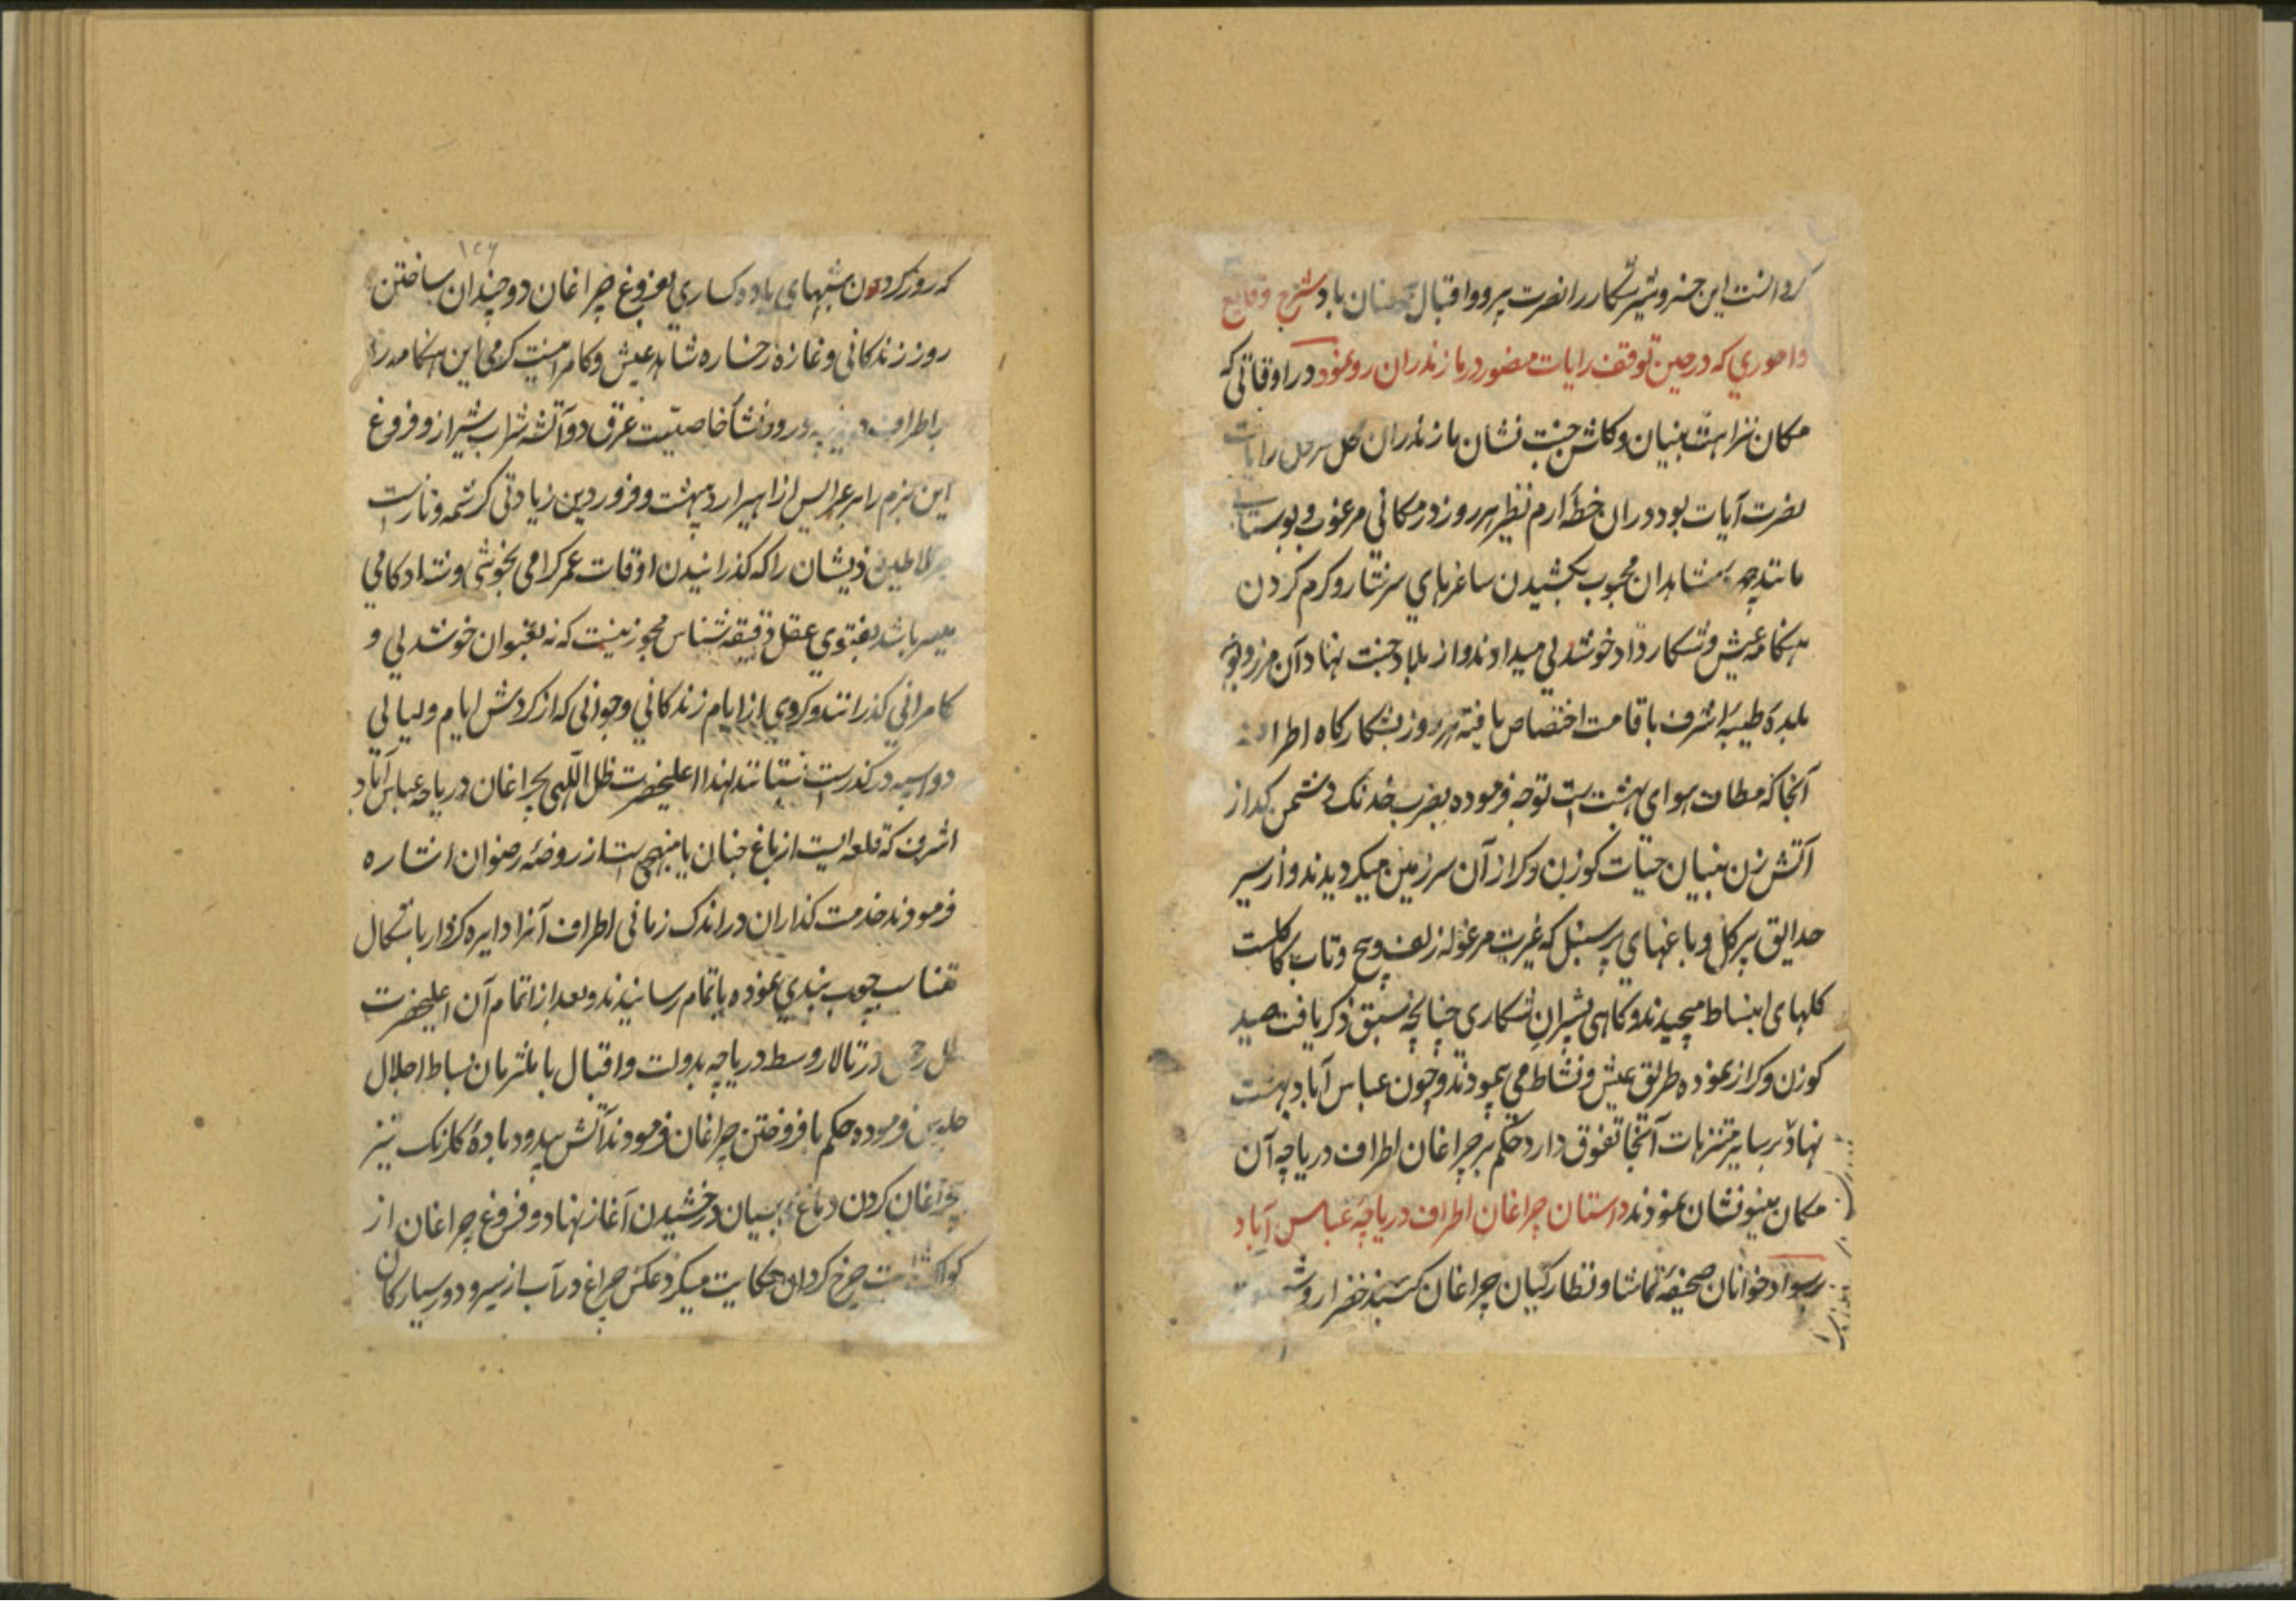 این خسرو شیر شکار را نصرت پیرو و اقبال عنان باد شرح وقایع
و اموری که در حین توقف رایات منصور در مازندران رو نمود در اوقاتی که
مکان نزاهت بنیان و کاشن جنت نشان مازندران محل رایات
نصرت آیات بود در ان خطه ارم نظیر هر روز در مکانی مرغوب و بوستانی
مانند چهره شاهدان محبوب بکشیدن ساغرهای سرشار و کرم کردن
هنکامه عیش و شکار داد خوشدلی میدادند و از بلاد جنت نهاد آن مرز و بوم
بلده طیبه اشرف باقامت اختصاص یافته هر روز بشکارکاه اطراف
آنجا که مطاف هوای بهشت است توجه فرموده بضرب خدنک دشمن کداز
آتش زن بنیان حیات کوزن و کراز آن سرزمین میکردیدند و از سیر
حدایق پر کل و باغهای پر سنبل که غیرت مرغوله زلف و پیچ و تاب کاکلست
کلهای انبساط میچیدند و کاهی بشیران شکاری چنانچه سبق ذکر یافت صید
کوزن و کراز نموده طریق عیش و نشاط می پیمودند و چون عباس آباد بهشت
نهاد بر سایر متنزهات آنجا تفوق دارد حکم بر چراغان اطراف دریاچه آن
مکان مینو نشان نمودند داستان چراغان اطراف دریاچه عباس آباد
بر سواد خوانان صحیفه تماشا و نظارکیان چراغان کنبد خضرا روشن
که روز کردن شبهای باده کساری بفروغ چراغان دو چندان ساختن
روز زندکانی و غازه رخساره شاهد عیش و کامرانیست کرمی این هنکامه را
باطراف درود نشأ خاصیت عرق دو آتشه شراب شیراز و فروغ
این بزم را بر عرایس ازاهیر اردیبهشت و فروردین زیادتی کرشمه و نازست
سلاطین ذیشان را که کذرانیدن اوقات عمر کرامی بخوشی و شادکامی
میسر باشد بفتوی عقل دقیقه شناس مجوز نیست که نه بعنوان خوشدلی و
کامرانی کذرانند و کروی از ایام زندکانی و جوانی که از کردش ایام و لیالی
دو اسبه در کذرست نستانند لهذا اعلیحضرت ظل اللهی بچراغان دریاچه عباس آباد
اشرف که قطعه ایست از باغ جنان یا منهجی است از روضه رضوان اشاره
فرمودند خدمت کذاران در اندک زمانی اطراف آنرا دایره کردار باشکال
متناسب چوب بندی نموده باتمام رسانیدند و بعد از اتمام آن اعلیحضرت
ظل رحمن در تالار وسط دریاچه بدولت و اقبال با ملتزمان بساط اجلال
جلوس فرموده حکم بافروختن چراغان فرمودند آتش بی دود باده کلرنک نیز
بچراغان کردن دماغ درخشیدن آغاز نهاد و فروغ چراغان از
کواکب چرخ کردان حکایت میکرد عکس چراغ در آب از سیر و دور سیارکان